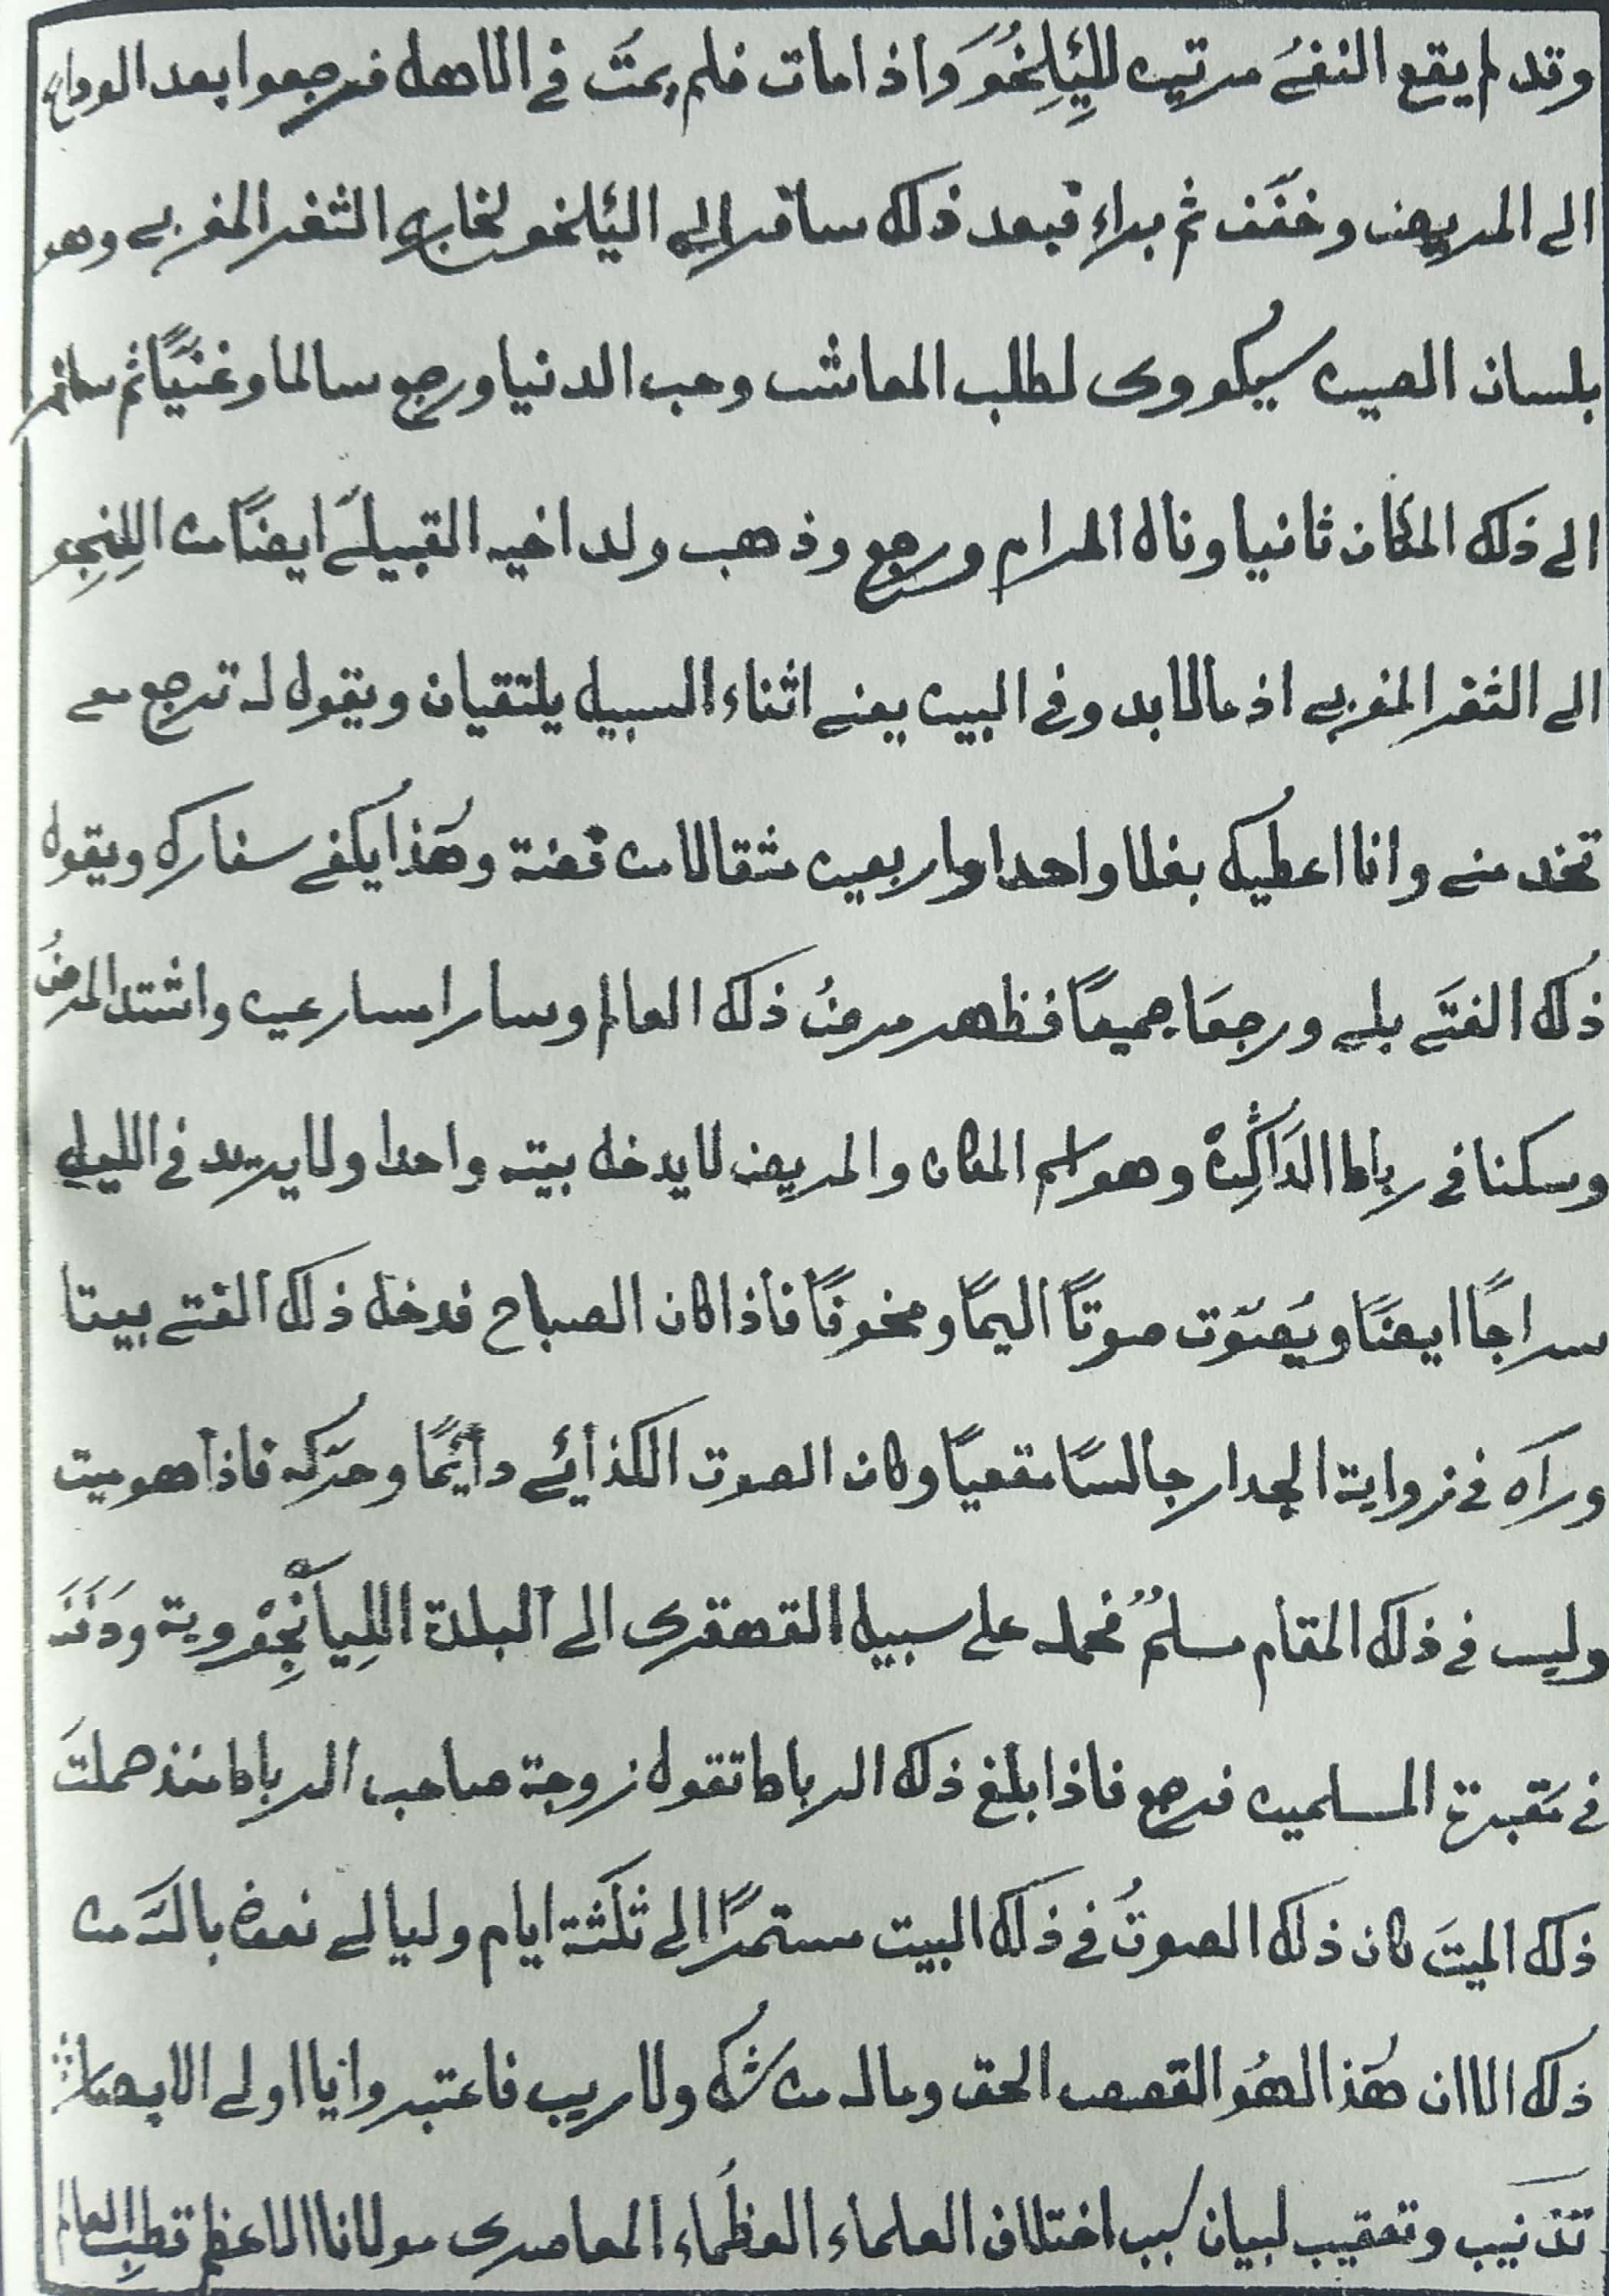 وقد لم يقع النفىُ مرتين للئَلِخُوَ واذا مات فلم يمتَ في الاهل فرجعوا بعد الوداع
الى المريض وخفّف ثم براء فبعد ذلك سافر الى الئلخو لخارى الثغر المغربي وهو
بلسان الصين سيكووى لطلب المعاش وحب الدنيا ورجع سالما وغنيًا ثم سافر
الى ذلك المكان ثانيا ونال المرام ورجع وذهب ولد اخيه القبيلَى ايضًا من اللِنجِو
الى الثغر المغربي اذ مالابد وفى البين يعنى اثناء السبيل يلتقيان ويقول له ترجع معى
تخد منى وانا اعطيك بغلا واحدا واربعين مثقالا من فضة وهٰذا يكفى سفارك ويقول
ذٰلك الفتَى بلى ورجعَا جميعًا فظهر مرضُ ذلك العالم وسارا مسارعين واشتد المرضُ
وسكنا في رباط الدَاكِثرة وهو اسم المكان والمريض لا يدخل بيته واحدا ولا يريد فى الليل
سراجًا ايضًا ويُصَوّت صوتًا اليمًا ومخوفًا فاذا كان الصباح فدخل ذلك الفتى بيتا
وراَه فى زواية الجدار جالسًا مقعيًا وكان الصوت الكذائى دائمًا وحرّكه فاذا هو ميت
وليس فى ذلك المقام مسلمٌ فحمله على سبيل القهقرى الى البلدة اللِيانْجِوْوية ودَفَنَه
في مَقبرة المسلمين فرجع فاذا بلغ ذلك الرباط تقول زوجة صاحب الرباط منذ حملتَ
ذلك الميتَ كان ذلك الصوتُ فى ذلك البيت مستمرًا الى ثلٰثة ايام وليالى نعوذ بالله من
ذلك الا ان هٰذا لهُو القصص الحق وماله من شك ولا ريب فاعتبروا يا اولى الابصار
تذنيب وتعقيب لبيان سبب اختلاف العلماء العظُماء المعاصرى مولانا الاعظم قطب العالم